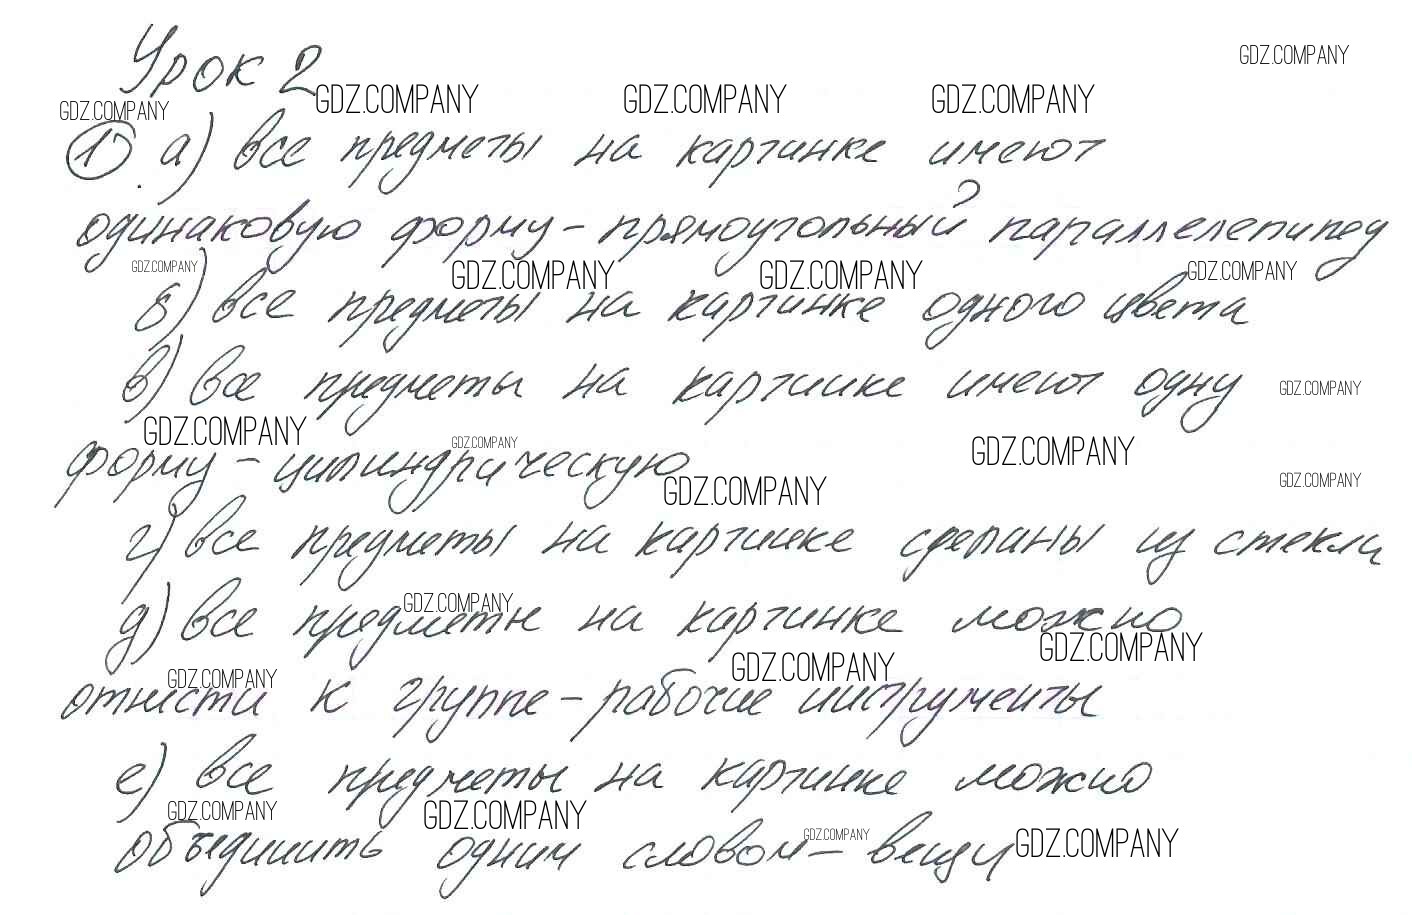 Урок 2
GDZ.COMPANY
GDZ.COMPANY GDZ.COMPANY GDZ.COMPANY GDZ.COMPANY
1) а) все предметы на картинке имеют
одинаковую форму – прямоугольный параллелепипед
GDZ.COMPANY GDZ.COMPANY GDZ.COMPANY GDZ.COMPANY
б) все предметы на картинке одного цвета
в) все предметы на картинке имеют одну
GDZ.COMPANY
GDZ.COMPANY GDZ.COMPANY GDZ.COMPANY
форму – цилиндрическую
GDZ.COMPANY GDZ.COMPANY
г) все предметы на картинке сделаны из стекла
GDZ.COMPANY
д) все предметы на картинке можно
GDZ.COMPANY GDZ.COMPANY GDZ.COMPANY
отнести к группе – рабочие инструменты
е) все предметы на картинке можно
GDZ.COMPANY GDZ.COMPANY GDZ.COMPANY GDZ.COMPANY
объединить одним словом – вещи